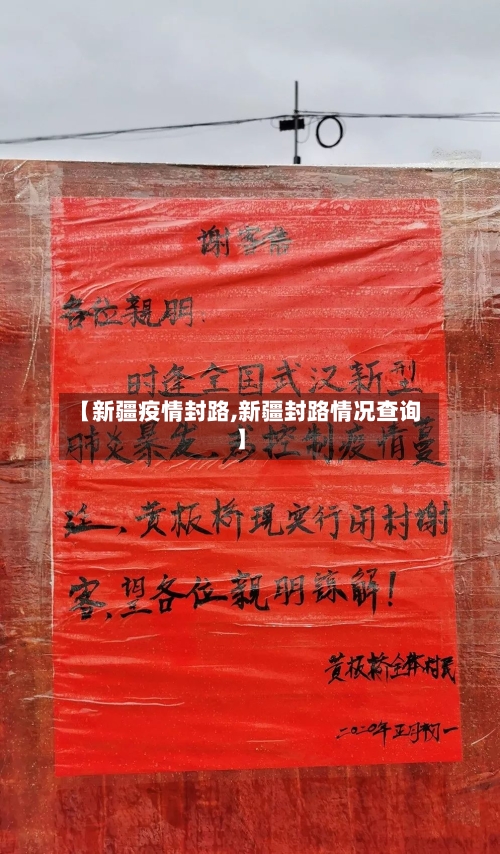 谢客
各位親朋.
时逢全国武汉新型
【新疆疫情封路,新疆封路情况查询
】
肺炎暴发、为控制疫情蔓
延、黄板桥現实行闭村谢
客、望各位親朋諒解!
黄板桥全体村民
二〇二〇年正月初一